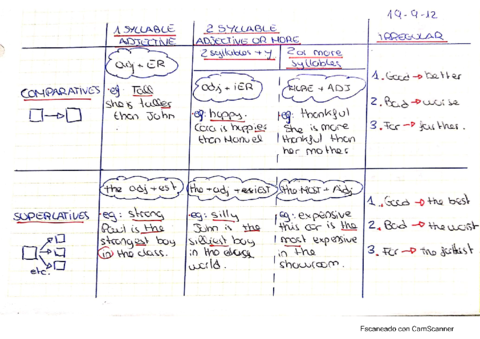 19-9-12
1 SYLLABLE
ADJECTIVE
2 SYLLABLE
ADJECTIVE OR MORE
IRREGULAR
2 syllables + y
2 or more
syllables
COMPARATIVES
adj + ER
eg: Tall
she is taller
than John
adj + iER
eg: happy.
Cara is happier
than Manuel
MORE + ADJ
eg: thankful
She is more
thankful than
her mother
1. Good → better
2. Bad → worse
3. Far → further.
SUPERLATIVES
etc.
the adj + est
eg: strong
Paul is the
strongest boy
in the class.
eg: silly
John is the
silliest boy
in the class
world.
the MOST + Adj
eg: expensive
this car is the
most expensive
in the
showroom.
1. Good → the best
2. Bad → the worst
3. Far → the
Escaneado con CamScanner